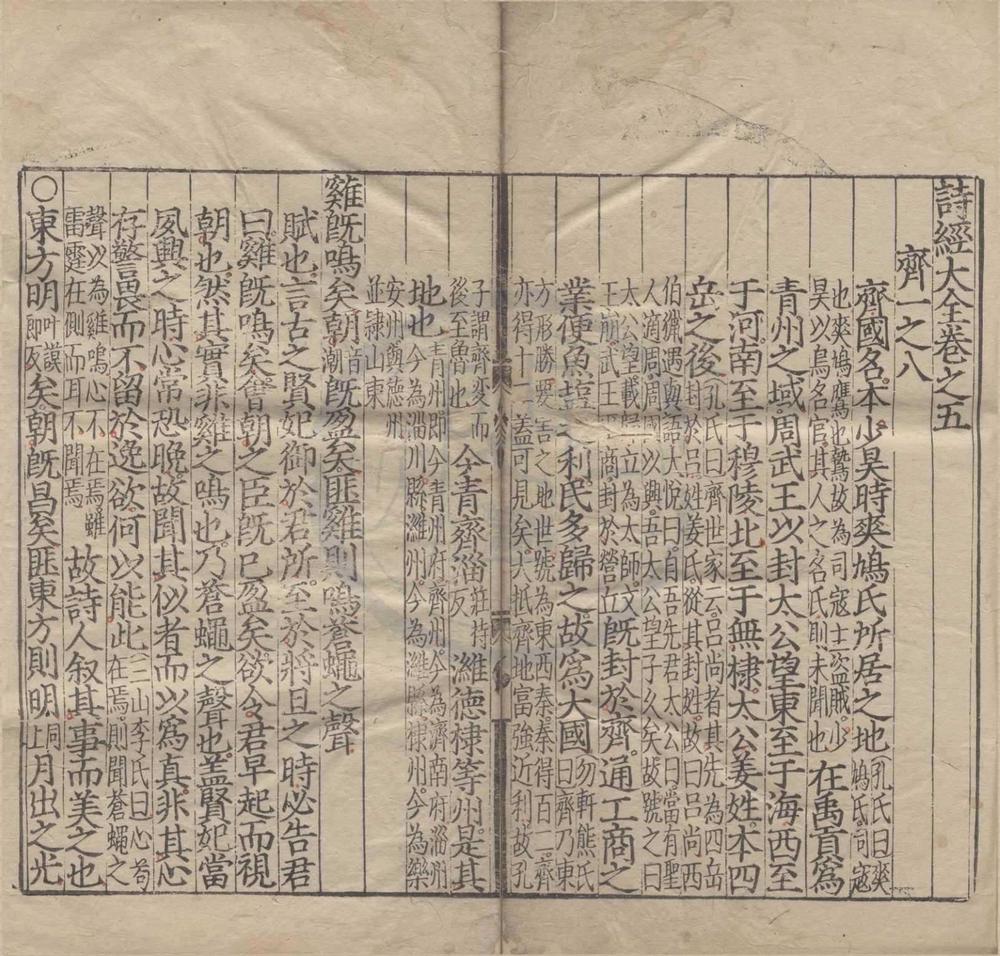 詩經大全卷之五
齊一之八
齊國名本少昊時爽鳩氏所居之地孔氏曰爽鳩氏司寇
也爽鳩鷹也鷙故為司寇主盜賊少
昊以鳥名官其人之名氏則未聞也在禹貢為
青州之域周武王以封太公望東至于海西至
于河南至于穆陵北至于無棣太公姜姓本四
岳之後孔氏曰齊世家云吕尚者其先為四岳
封於吕姓姜氏從其封姓故曰吕尚西
伯獵遇與語大悅曰自吾先君太公曰當有聖
人適周周以興吾太公望子久矣故號之曰
太公望載歸立為太師文
王崩武王商封於營丘既封於齊通工商之
業便魚鹽之利民多歸之故為大國勿軒熊氏
曰齊乃東
方形勝要害之地世號為東西秦秦得百二齊
亦得十二蓋可見矣大抵齊地富強近利故孔
子謂齊变而
後至魯也今青齊淄莊持
反濰德棣等州是其
地也青州即今青州府齊州今為濟南府淄州
今為淄川縣濰州今為濰縣棣州今為樂
安州與德州
並隸山東
雞既鳴矣朝音
潮既盈矣匪雞則鳴蒼蠅之聲
賦也言古之賢妃御於君所至於將旦之時必告君
曰雞既鳴矣會朝之臣既已盈矣欲令君早起而視
朝也然其實非雞之鳴也乃蒼蠅之聲也蓋賢妃當
夙興之時心常恐晚故聞其似者而以為真非其心
存警畏而不留於逸欲何以能此三山李氏曰心苟
在焉則聞蒼蠅之
聲以為雞鳴心不在焉雖
雷霆在側而耳不聞焉故詩人叙其事而美之也
○東方明叶謨
郎反矣朝既昌矣匪東方則明同
上月出之光